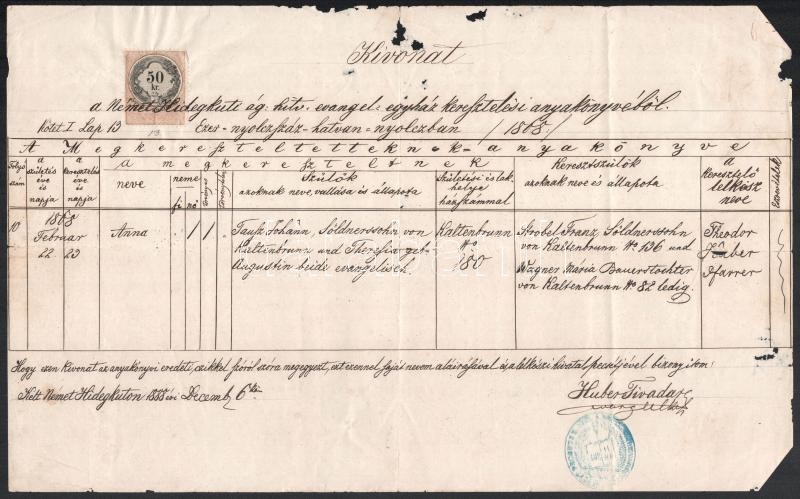 Kivonat
50
kr.
a Német Hidegkuti ág. hitv. evangel. egyház keresztelési anyakönyvéből.
Kötet I. Lap 13
13
Ezer-nyolczszáz-hatvan-nyolczban /1868./
A Megkereszteltetteknek anyakönyve
Folyó szám
a születés éve és napja
a keresztelés éve és napja
a megkereszteltnek
neve
neme
fi
nő
Szülők
azoknak neve, vallása és állapota
Születési és lak-
helye
házszámmal
Keresztszülők
azoknak neve és állapota
a
keresztelő
lelkész
neve
Észrevételek
10
1868
Februar
22 23
Anna
Tausz Johann Söldnerssohn von
Kaltenbrunn und Theresia geb.
Augustin beide evangelisch.
Kaltenbrunn
No
180
Strobel Franz, Söldnerssohn
von Kaltenbrunn No 136 und
Wagner Mária Bauerstochter
von Kaltenbrunn No 82 ledig.
Theodor
Pfarrer
Hogy ezen Kivonat az anyakönyvi eredeti czikkel szóról szóra megegyezt, ezt ezennel saját nevem aláirásával és a lelkészi hivatal pecsétjével bizonyitom:
Kelt Német Hidegkuton 1888 évi Decemb. 6án
Huber Tivadar